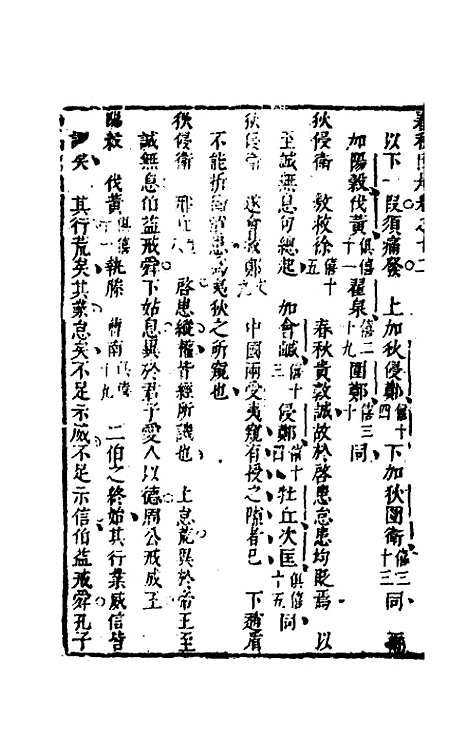 以下一段須痛發　上加狄侵鄭僖十四　下加狄圍衛僖三十三同
加陽穀伐黃俱僖十一翟泉僖二十九圍鄭僖三十同
狄侵衛　敦救徐僖十五　春秋貴敦誠故於啓患怠患均貶焉　以
至誠無息句總起　加會鹹僖十三　侵鄭僖十四　牡丘次匡俱僖十五同
狄侵　遂會　鄭　中國兩受夷窺有授之隙者已　下趙盾
不能折　患為夷狄之所窺也
狄侵衛　邢　啓患縱　皆經所譏也　上怠荒與於帝王至
誠無息伯益戒舜下姑息與於君子愛人以德周公戒成王
陽穀　伐黃俱僖十一執滕　曹南俱僖十九　二伯之終始其行業威信皆
矣　其行荒矣其業怠矣不足示威不足示信伯益戒舜孔子